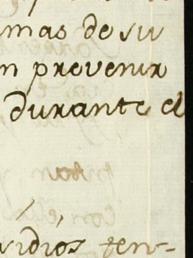 mas de su
n prevenir
durante el
vidios ten-